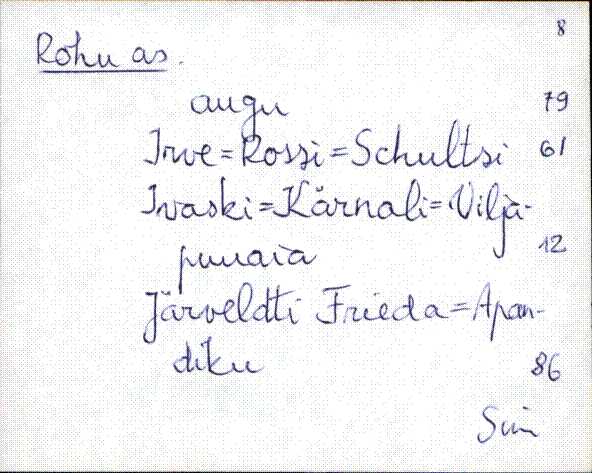 8
Rõhu as.
augu 79
Irve=Rossi=Schultsi 61
Ivaski=Kärnali=Vilja-
puuaia 12
Järveldti Frieda=Apan-
diku 86